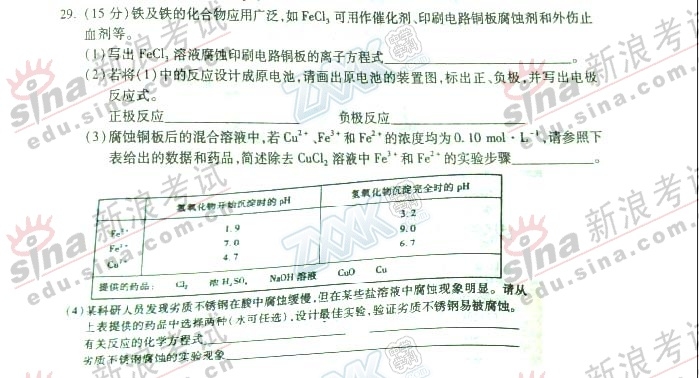 29. (15 分)铁及铁的化合物应用广泛,如 FeCl₃ 可用作催化剂、印刷电路铜板腐蚀剂和外伤止
血剂等。
(1)写出 FeCl₃ 溶液腐蚀印刷电路铜板的离子方程式____________。
(2)若将(1)中的反应设计成原电池,请画出原电池的装置图,标出正、负极,并写出电极
反应式。
正极反应____________ 负极反应____________
(3)腐蚀铜板后的混合溶液中,若 Cu²⁺、Fe³⁺ 和 Fe²⁺ 的浓度均为 0.10 mol·L⁻¹,请参照下
表给出的数据和药品,简述除去 CuCl₂ 溶液中 Fe³⁺ 和 Fe²⁺ 的实验步骤____________。
氢氧化物开始沉淀时的 pH 氢氧化物沉淀完全时的 pH
Fe³⁺ 1.9 3.2
Fe²⁺ 7.0 9.0
Cu²⁺ 4.7 6.7
提供的药品: Cl₂ 浓 H₂SO₄ NaOH 溶液 CuO Cu
(4)某科研人员发现劣质不锈钢在酸中腐蚀缓慢,但在某些盐溶液中腐蚀现象明显。请从
上表提供的药品中选择两种(水可任选),设计最佳实验,验证劣质不锈钢易被腐蚀。
有关反应的化学方程式____________
劣质不锈钢腐蚀的实验现象____________
sina 新浪考试
edu.sina.com.cn